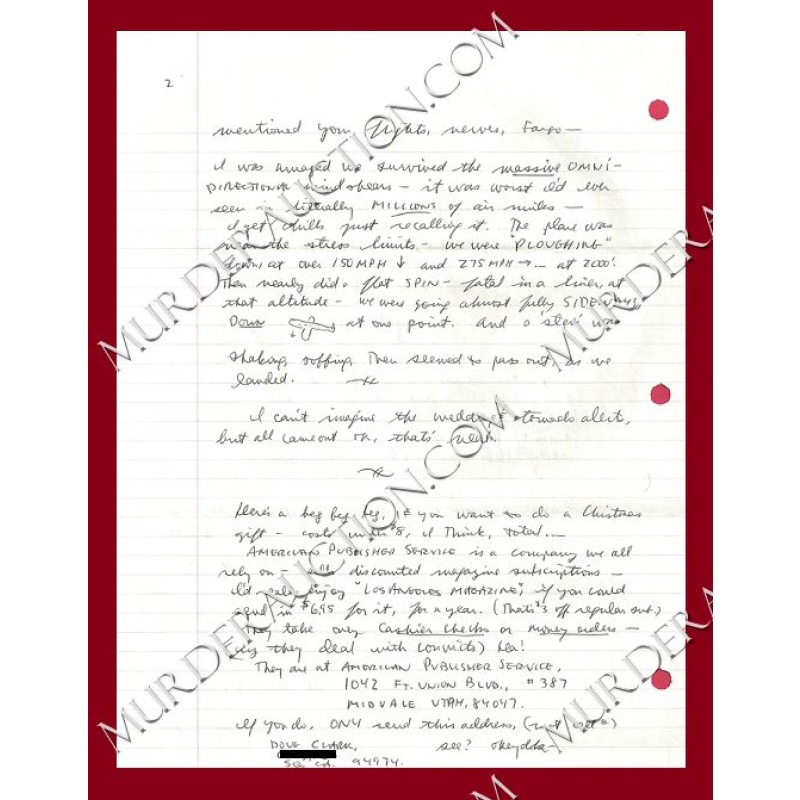 2
mentioned your flights, nerves, Fargo —
I was amazed we survived the massive OMNI-
DIRECTIONAL windshears — it was worst I'd ever
seen in literally MILLIONS of air miles —
I get chills just recalling it. The plane was
the stress limits — we were "PLOUGHING"
down, at over 150 MPH ↓ and 275 MPH → — at 2000'.
Then nearly did a flat SPIN — fatal in a liner, at
that altitude — we were going almost fully SIDEWAYS,
Down at one point. And a was
shaking, sobbing, Then seemed to pass out, as we
landed.
I can't imagine the wedding + tornado alert,
but all came out ok, that's
Here's a beg beg beg, IF you want to do a Christmas
gift — costs under $8, I Think, total..
AMERICAN PUBLISHER SERVICE is a company we all
rely on — discounted magazine subscriptions —
I'd enjoy "LOS ANGELES MAGAZINE", if you could
send in $6.95 for it, for a year. (That's $3 off regular )
They take only Cashier Checks or money orders —
( they deal with convicts) hea!
They are at AMERICAN PUBLISHER SERVICE,
1042 FT. UNION BLVD., #387
MIDVALE UTAH, 84047.
If you do, ONLY send this address, (
DOUG CLARK, see? okeydoke —
SQ CA. 94974.
MURDERAUCTION.COM